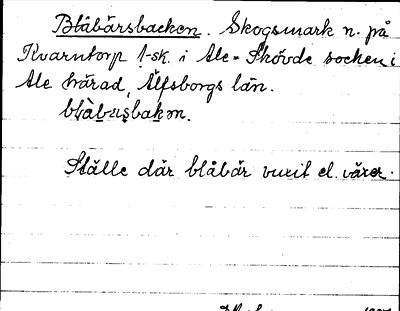 Blåbärsbacken. Skogsmark n. på
Kvarntorp 1-sk. i Ale-Skövde socken i
Ale härad, Älfsborgs län.
Ställe där blåbär vuxit el. växer.